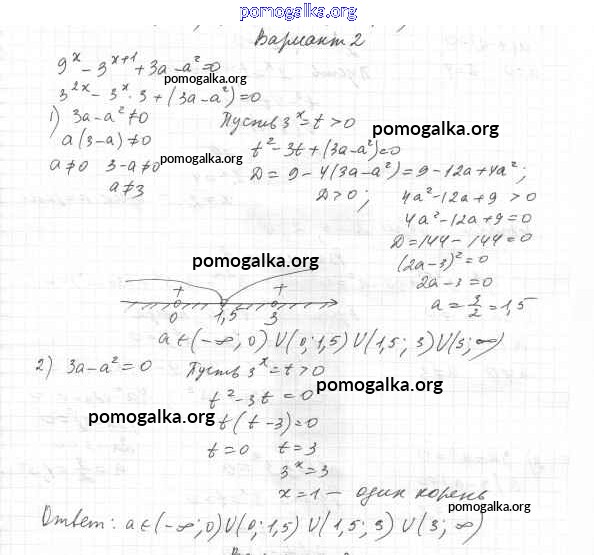 pomogalka.org
Вариант 2
9^x - 3^{x+1} + 3a - a^2 = 0
pomogalka.org
3^{2x} - 3^x · 3 + (3a - a^2) = 0
1) 3a - a^2 ≠ 0 Пусть 3^x = t > 0
pomogalka.org
a(3-a) ≠ 0 t^2 - 3t + (3a - a^2) = 0
a ≠ 0 3-a ≠ 0 pomogalka.org D = 9 - 4(3a - a^2) = 9 - 12a + 4a^2;
a ≠ 3 D > 0; 4a^2 - 12a + 9 > 0
4a^2 - 12a + 9 = 0
pomogalka.org D = 144 - 144 = 0
(2a - 3)^2 = 0
2a - 3 = 0
+ +
a = 3/2 = 1,5
0 1,5 3
a ∈ (-∞; 0) U (0; 1,5) U (1,5; 3) U (3; ∞)
2) 3a - a^2 = 0 Пусть 3^x = t > 0
pomogalka.org
t^2 - 3t = 0
pomogalka.org t(t - 3) = 0
t = 0 t = 3
3^x = 3
x = 1 - один корень
pomogalka.org
Ответ: a ∈ (-∞; 0) U (0; 1,5) U (1,5; 3) U (3; ∞)